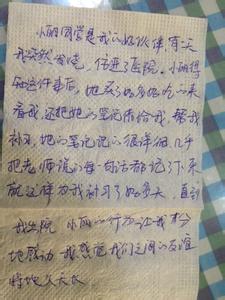 小丽同学是我的好伙伴,有天
我突然发烧,住进了医院。小丽得
知这件事后,她买了好多好吃的来
看我,还把她的笔记带给我,帮我
补习,她的笔记记的很详细,几乎
把老师说的每一句话都记了下来
就这样为我补习了好多天,直到
我出院,小丽的行为让我十分
地感动,我感觉我们之间的友谊
特地久天长